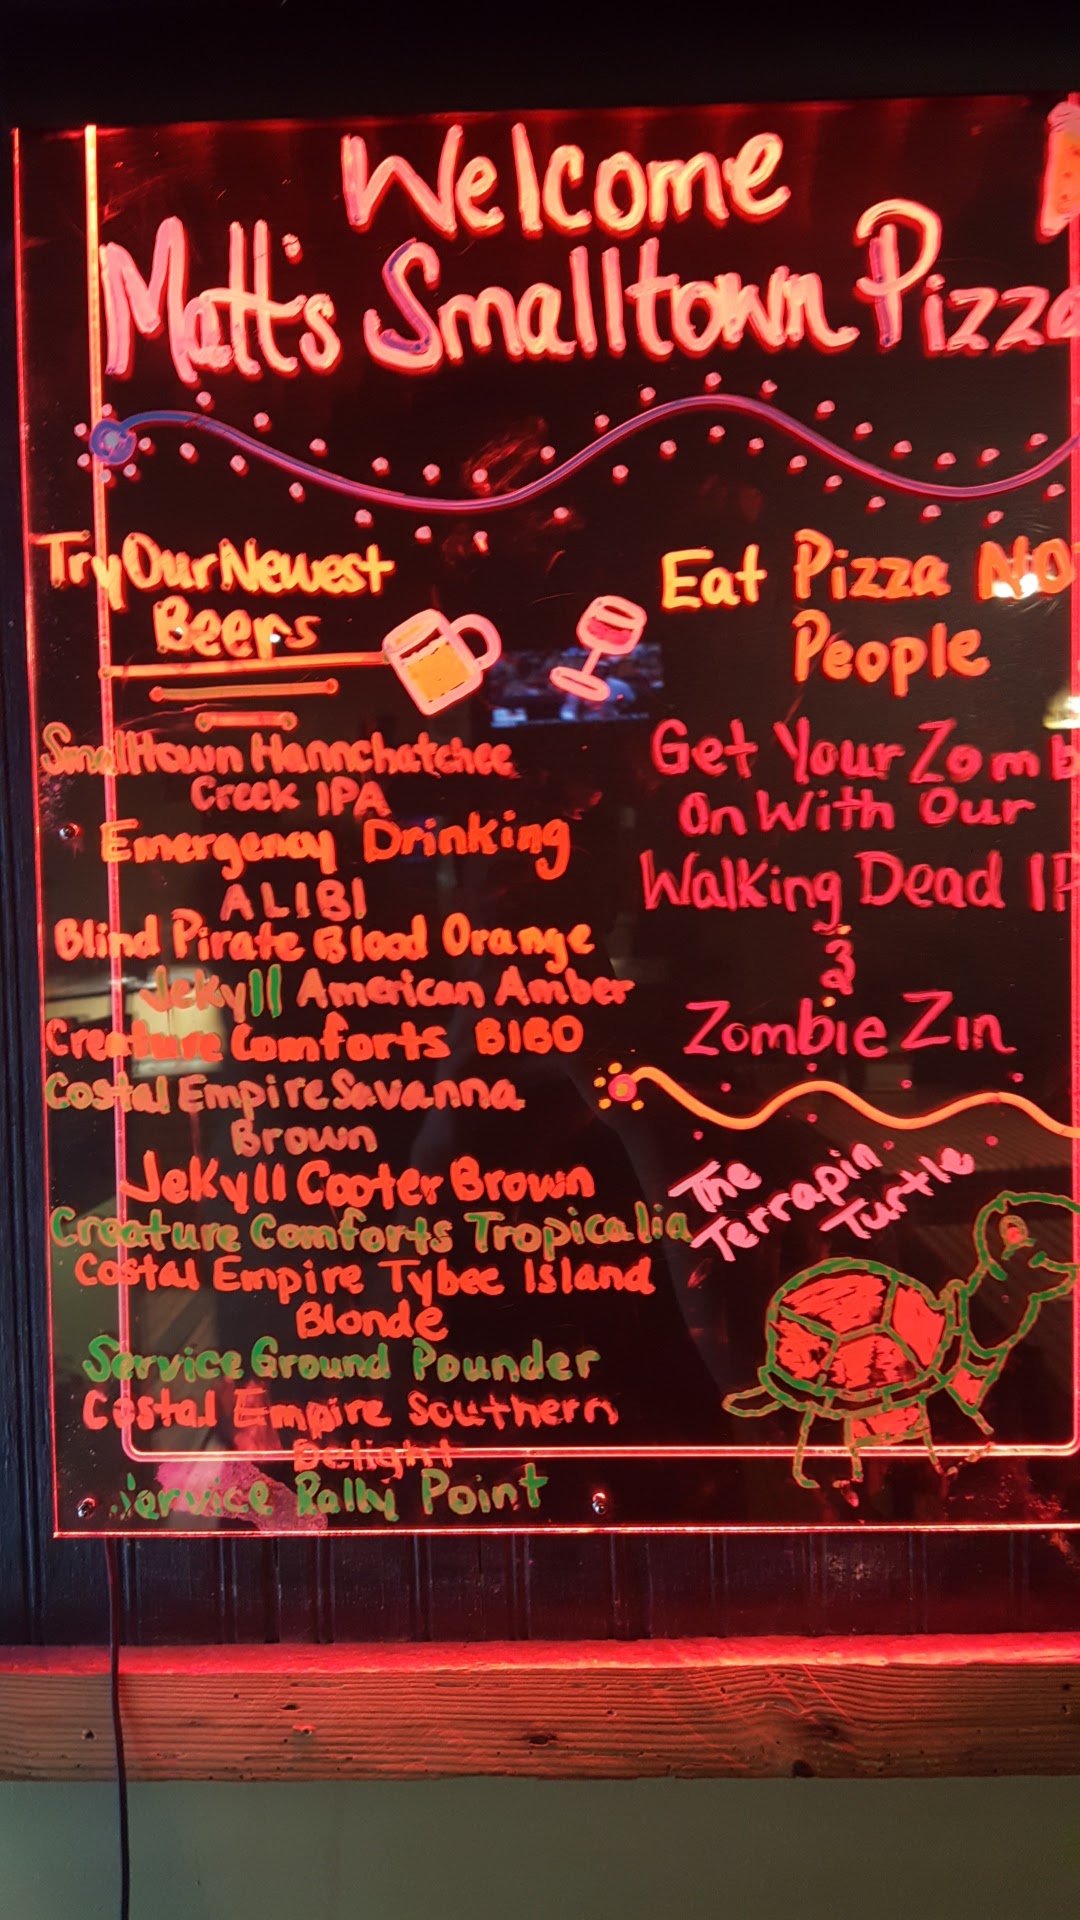 Welcome
Matt's Smalltown Pizza
Try Our Newest
Beers
Smalltown Hannchatchee
Creek IPA
Emergency Drinking
ALIBI
Blind Pirate Blood Orange
Jekyll American Amber
Creature Comforts BIBO
Costal Empire Savanna
Brown
Jekyll Cooter Brown
Creature Comforts Tropicalia
Costal Empire Tybee Island
Blonde
Service Ground Pounder
Costal Empire Southern
Delight
Service Rally Point
Eat Pizza NO
People
Get Your Zomb
On With Our
Walking Dead IP
&
Zombie Zin
The
Terrapin
Turtle